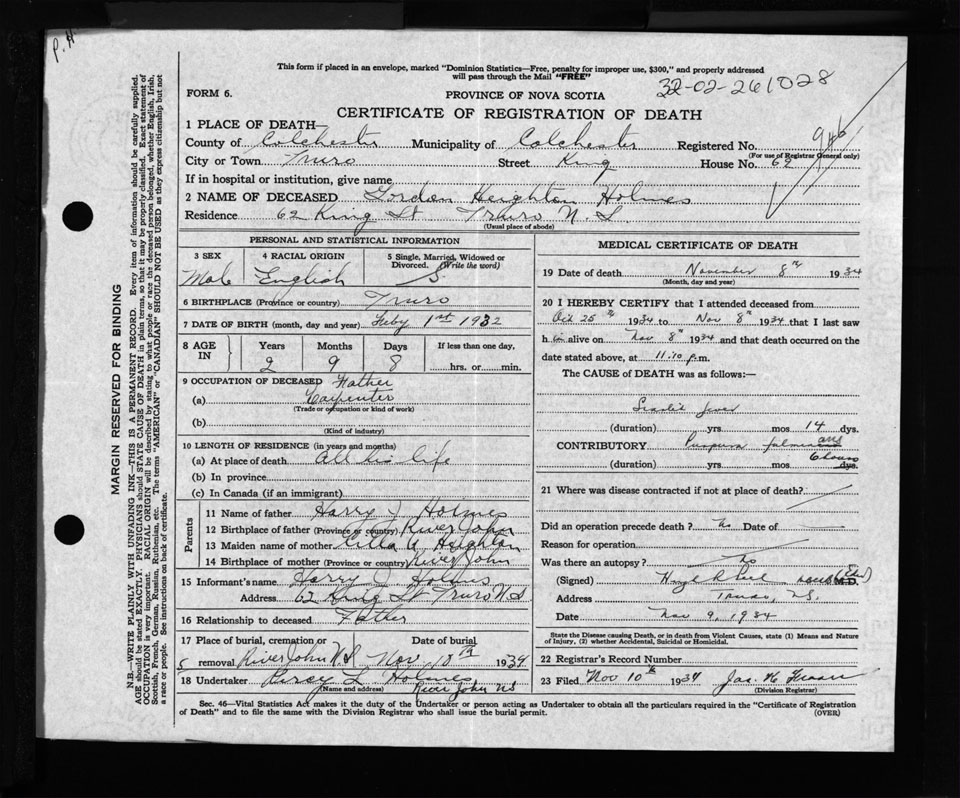 P. H.
This form if placed in an envelope, marked "Dominion Statistics—Free, penalty for improper use, $300," and properly addressed
will pass through the Mail "FREE"
32-02-261028
FORM 6.
PROVINCE OF NOVA SCOTIA
CERTIFICATE OF REGISTRATION OF DEATH
1 PLACE OF DEATH—
County of Colchester Municipality of Colchester Registered No.
(For use of Registrar General only)
City or Town Truro Street King House No. 62
If in hospital or institution, give name
2 NAME OF DECEASED Gordon Heighton Holmes
Residence 62 King St Truro N. S
(Usual place of abode)
PERSONAL AND STATISTICAL INFORMATION
3 SEX 4 RACIAL ORIGIN 5 Single, Married, Widowed or Divorced. (Write the word)
Male English S.
6 BIRTHPLACE (Province or country) Truro
7 DATE OF BIRTH (month, day and year) Feby 1st 1932
8 AGE IN Years Months Days If less than one day.
2 9 8 hrs. or min.
9 OCCUPATION OF DECEASED Father
(a) Carpenter
(Trade or occupation or kind of work)
(b)
(Kind of industry)
10 LENGTH OF RESIDENCE (in years and months)
(a) At place of death All his life
(b) In province
(c) In Canada (if an immigrant)
Parents
11 Name of father Harry J. Holmes
12 Birthplace of father (Province or country) River John
13 Maiden name of mother A Heighton
14 Birthplace of mother (Province or country) River John
15 Informant's name Harry J. Holmes
Address 62 King St Truro N S
16 Relationship to deceased Father
17 Place of burial, cremation or removal Date of burial
River John N S Nov 10th 1934
18 Undertaker Percy L Holmes
(Name and address) River John NS
MEDICAL CERTIFICATE OF DEATH
19 Date of death November 8th 1934
(Month, day and year)
20 I HEREBY CERTIFY that I attended deceased from
Oct 25th 1934 to Nov 8th 1934 that I last saw
h im alive on Nov 8th 1934 and that death occurred on the
date stated above, at 11.10 p.m.
The CAUSE of DEATH was as follows:—
Scarlet fever
(duration) yrs. mos 14 dys.
CONTRIBUTORY Purpura fulminans
(duration) yrs. mos 6 hours dys.
21 Where was disease contracted if not at place of death?
Did an operation precede death ? No Date of
Reason for operation
Was there an autopsy? No
(Signed) M.D.
Address Truro, N.S.
Date Nov 9, 1934
State the Disease causing Death, or in death from Violent Causes, state (1) Means and Nature
of Injury, (2) whether Accidental, Suicidal or Homicidal.
22 Registrar's Record Number
23 Filed Nov 10th 1934 Jas.
(Division Registrar)
Sec. 46—Vital Statistics Act makes it the duty of the Undertaker or person acting as Undertaker to obtain all the particulars required in the "Certificate of Registration
of Death" and to file the same with the Division Registrar who shall issue the burial permit.
(OVER)
MARGIN RESERVED FOR BINDING
N.B.—WRITE PLAINLY WITH UNFADING INK—THIS IS A PERMANENT RECORD. Every item of information should be carefully supplied.
AGE should be stated EXACTLY. PHYSICIANS should STATE CAUSE OF DEATH in plain terms, so that it may be properly classified. Exact statement of
OCCUPATION is very important. RACIAL ORIGIN will be described by stating to what people or race the deceased person belonged, whether English, Irish,
Scottish, French, German, Russian, Ruthenian, etc. The terms "AMERICAN" or "CANADIAN" SHOULD NOT BE USED as they express citizenship but not
a race or people. See instructions on back of certificate.